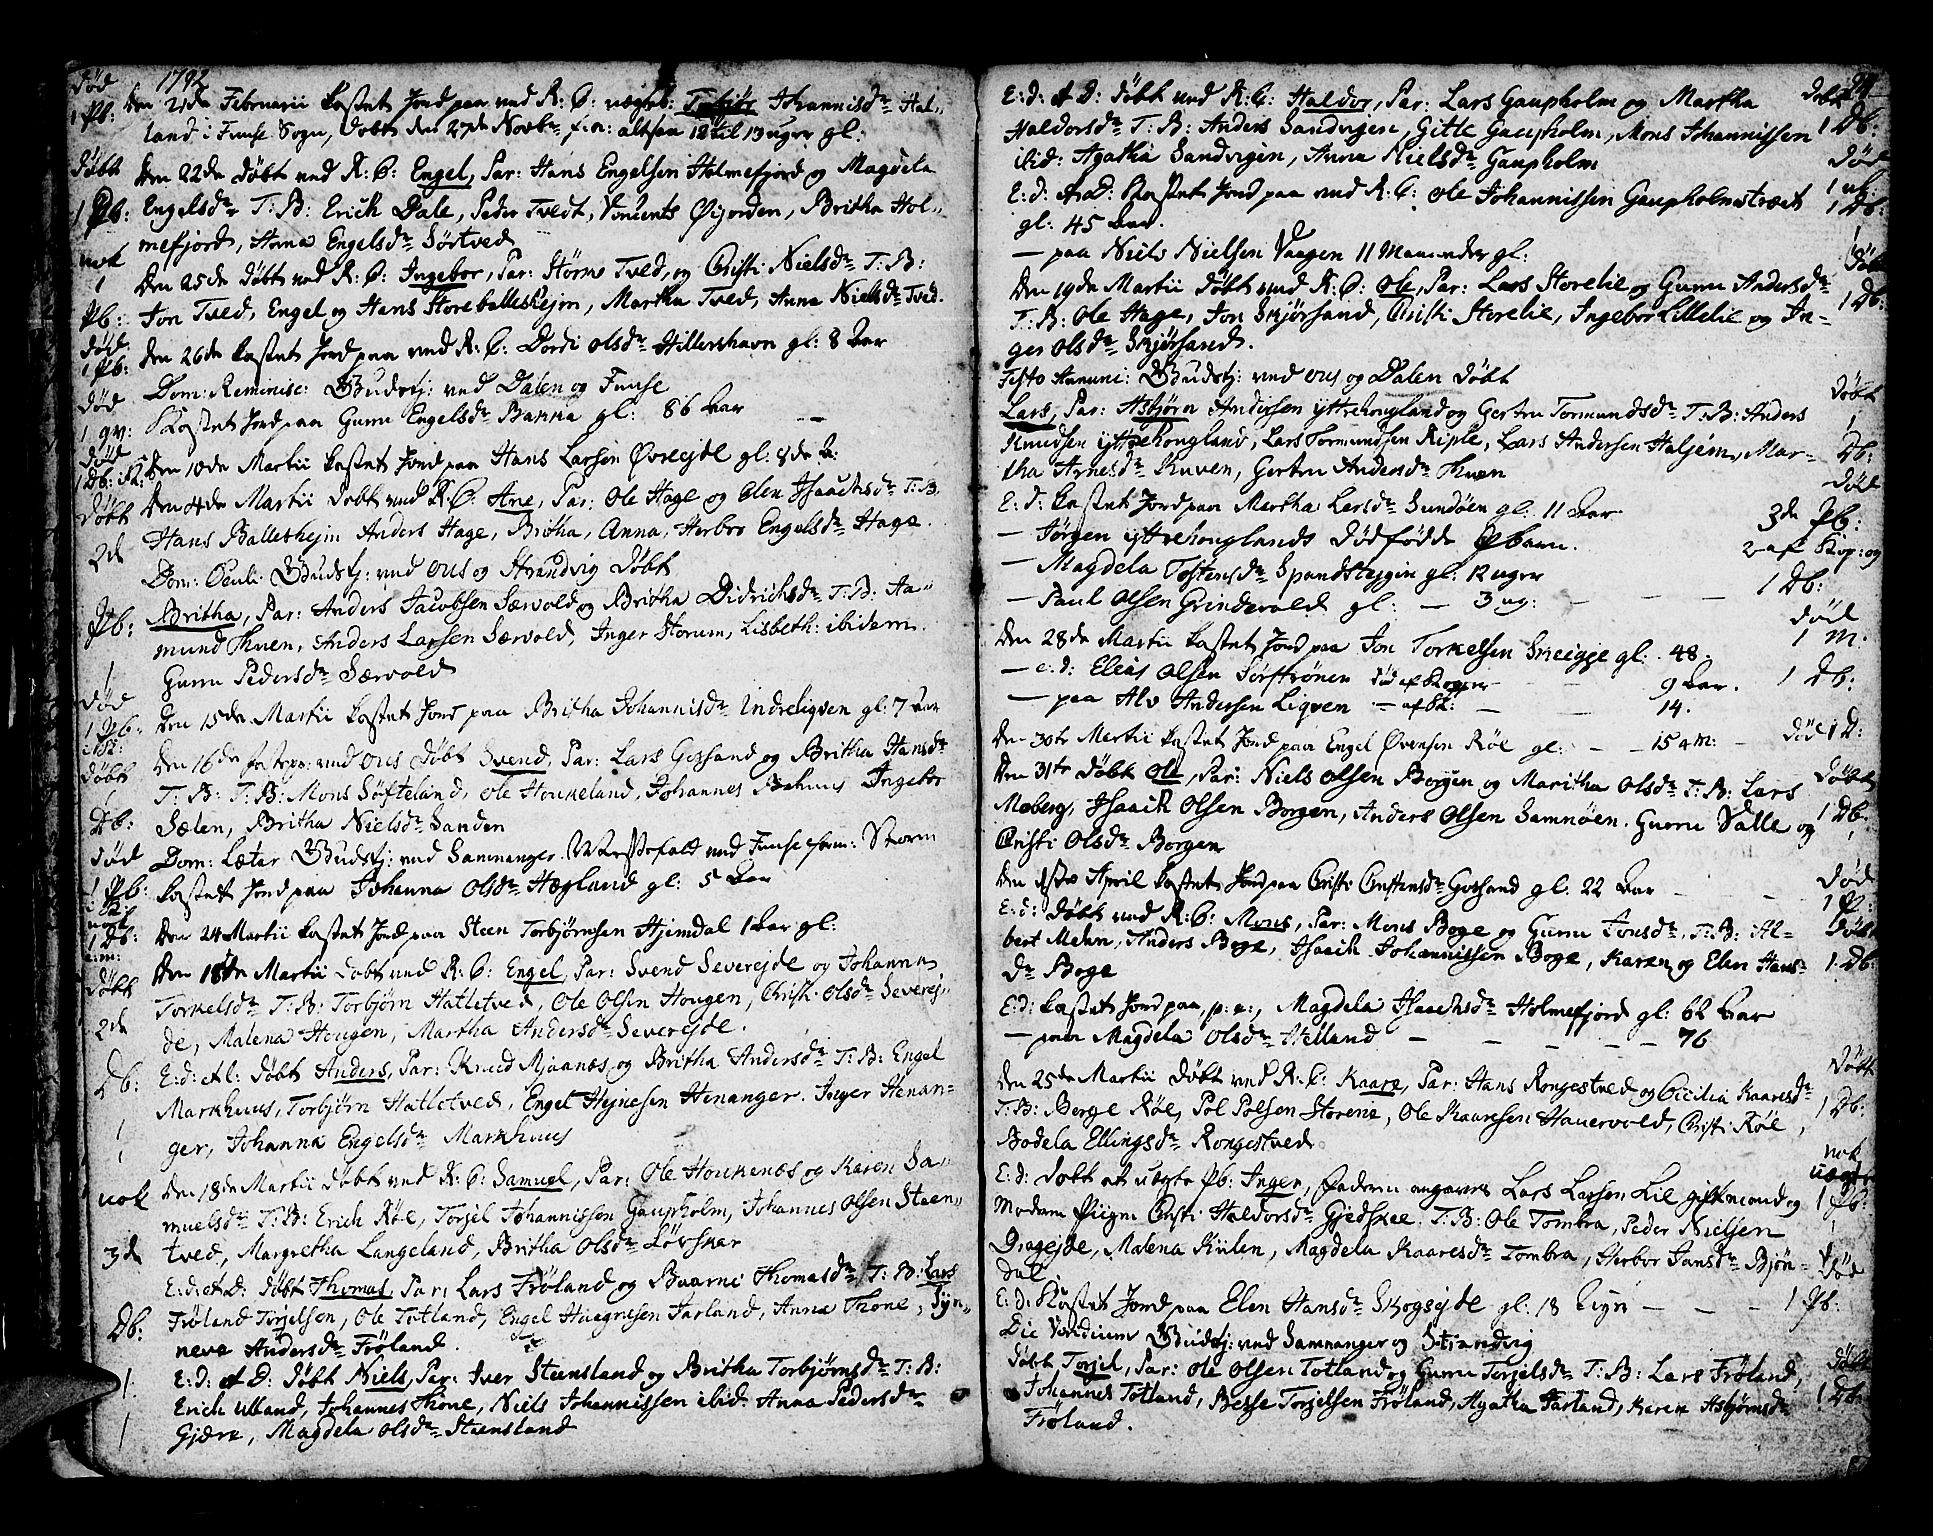 1792
død
1 Pb: Den 21de Februarii kastet Jord paa ved K: C: uægteb: Torbjør Johannisdr Hal-
land i Fuuse Sogn, døbt den 27de Novbr f: a: altsaa 12 til 13 uger gl:
Døbt Den 22de døbt ved K: C: Engel, Par: Hans Engelsen Holmefjord og Magdela
1 Pb: Engelsdr T: B: Erich Dale, Peder Tvedt, Vincents Øijorden, Britha Hol-
mefjord, Anna Engelsdr Sørtved
nok Den 25de døbt ved K: C: Ingebor, Par: Størms Tved, og Christi Nielsdr T: B:
1 Pb: Jon Tved, Engel og Hans Storeballeshejen, Martha Tved, Anna Nielsdr Tved.
døde
1 Pb: Den 26de kastet Jord paa ved K: C: Dordi Olsdr Hillershavn gl: 8 Aar
Dom: Reminisc: Gudstj: ved Dalen og Fuuse
død
1 qv: Kastet Jord paa Guru Engelsdr Banna gl: 86 Aar
død
1 Db: Den 10de Martii kastet Jord paa Hans Larsen Øvrejde gl: 8de A:
Døbt Den 4de Martii døbt ved K: C: Ane, Par: Ole Hage og Elen Isaachsdr T: B:
2de Hans Balleshejen Anders Hage, Britha, Anna, Herbro Engelsdr Hage.
Dom: Oculi: Gudstj: ved Ous og Strandvig døbt
Pb: Britha, Par: Anders Jacobsen Særvold og Britha Didrichsdr T: B: Aa-
mund Thuen, Anders Larsen Særvold, Inger Storum, Lisbeth: ibidem.
1 Guru Pedersdr Særvold
død
1 Pb: Den 15de Martii kastet Jord paa Britha Johannisdr Indreliqven gl: 7 Aar
Døbt Den 16de fastepr: ved Ous døbt Svend, Par: Lars Gossand og Britha Hansdr
1 Db: T: B: T: B: Mons Søfteland, Ole Houkeland, Johannes Bahuus Ingebor
Sælen, Britha Nielsdr Sanden
død Dom: Lætar Gudstj: ved Samnanger. Messefalt ved Fuuse form: Storm
1 Pb: kastet Jord paa Johanna Olsdr Hægland gl: 5 Aar
nok
1 Db: Den 24 Martii kastet Jord paa Steen Torbjørnsen Hjemdal 1 Aar gl:
Døbt Den 18de Martii døbt ved K: C: Engel, Par: Svend Severejde og Johanna
2de Torkelsdr T: B: Torbjørn Hatletved, Ole Olsen Hougen, Christi Olsdr Severej-
de, Malena Hougen, Martha Andersdr Severejde.
Db: E: d: et l: døbt Anders, Par: Knud Mjaanes, og Britha Andersdr T: B: Engel
Markhuus, Torbjørn Hatletved, Engel Hejnesen Henanger. Inger Henan-
ger, Johanna Engelsdr Markhuus
nok Den 18de Martii døbt ved K: C: Samuel, Par: Ole Houkenæs og Karen Sa-
muelsdr T: B: Erich Røe, Torjel Johannissen Gaupholm, Johannes Olsen Steen-
3de tved, Margretha Langeland, Britha Olsdr Løvskar
E: d: et D: døbt Thomas, Par: Lars Frøland og Baarni Thomasdr T: B: Lars
Db: Frøland Torjelsen, Ole Totland, Engel Haagnesen Jarland, Anna Thone, Syn-
neve Andersdr Frøland.
1 E: d: et D: døbt Niels, Par: Iver Steensland og Britha Torbjørnsdr T: B:
Erich Ulland, Johannes Thone, Niels Johannissen ibid: Anna Pedersdr
1 Gjære, Magdela Olsdr Steensland
E: d: et D: døbt ved K: C: Haldor, Par: Lars Gaupholm og Martha døbt
Haldorsdr T: B: Anders Sandvigen, Gitle Gaupholm, Mons Johannissen 1 Db:
ibid: Agatha Sandvigen, Anna Nielsdr Gaupholm død
E: d: et D: kastet Jord paa ved K: C: Ole Johannissen Gaupholmstræet
gl: 45 Aar. 1 Db:
— paa Niels Nielsen Vaagen 11 Maaneder gl:
Den 19de Martii døbt ved K: C: Ole, Par: Lars Storelie og Guru Andersdr
T: B: Ole Hage, Jon Skjørsand, Christi Storelie, Ingebor Lillelie og In- 1 Db:
ger Olsdr Skjørsand.
Festo Annunc: Gudstj: ved Ous og Dalen døbt Døbt
Lars, Par: Asbjørn Andersen Yttrehougland og Gertru Tormundsdr T: B: Anders 1
Knudsen Yttrehougland, Lars Tormundsen Riple, Lars Andersen Haljem, Mar- Db:
tha Arnesdr Kuven, Gertru Andersdr Thuen død
E: d: kastet Jord paa Martha Larsdr Sundøen gl: 11 Aar 3de Pb:
— Jørgen Yttrehouglands dødfødde Pbarn. 2 af Kop: og
— Magdela Tostensdr Spandsteggin gl: 12 uger 1 Db:
— Paul Olsen Grindevold gl: — 3 ug: død
Den 28de Martii kastet Jord paa Jon Torkelsen Skeigge gl: 48. 1 M.
— e: d: Elias Olsen Sørstrønen død af Kopper 9 Aar. 1 Db:
— paa Alv Andersen Liqven — af K: — 14.
Den 30te Martii kastet Jord paa Engel Øvensen Røe gl: — — 15 a m: død 1 D:
Den 31te døbt Ole, Par: Niels Olsen Borgen og Maritha Olsdr T: B: Lars Døbt
Moberg, Isaach Olsen Borgen, Anders Olsen Samnøen. Guru Valle og 1 Db:
Christi Olsdr Borgen
Den 1ste April kastet Jord paa Christi Christensdr Gossand gl: 22 Aar død
E: d: døbt ved K: C: Mons, Par: Mons Boge og Guru Jonsdr, T: B: Al- Døbt
bert Mehn, Anders Boge, Isaach Johannissen Boge, Karen og Elen Hans- 1 Db:
dr Boge
E: d: kastet Jord paa, p: e:, Magdela Isaachsdr Holmefjord gl: 62 Aar
— paa Magdela Olsdr Helland — — — — — 76
Den 25de Martii døbt ved K: C: Kaare, Par: Hans Rongestved og Cicilia Kaaresdr Døbt
T: B: Berge Røe, Pol Polsen Storene, Ole Kaaresen Hauervold, Christi Røe, 1 Db:
Bodela Ellingsdr Rongestved nok
E: d: døbt et uægte Pb: Ingen, Faderen angaves Lars Larsen Lie giftmand og uægte
Modem Piigen Christi Haldorsdr Gjedskee. T: B: Ole Tombra, Peder Nielsen 1 Pb:
Dragejde, Malena Kiilen, Magdela Kaaresdr Tombra, Herbor Jansdr Bjøn-
dal død
E: d: Kastet Jord paa Elen Hansdr Skogsejde gl: 18 Aar — — — 1 Pb:
Die Viridium Gudstj: ved Samnanger og Strandvig
døbt Torjel, Par: Ole Olsen Totland og Guru Torjelsdr T: B: Lars Frøland, døbt
Johannes Totland, Besse Torjelsen Frøland, Agatha Jarland, Karen Asbjørnsdr 1 Db:
Frøland.